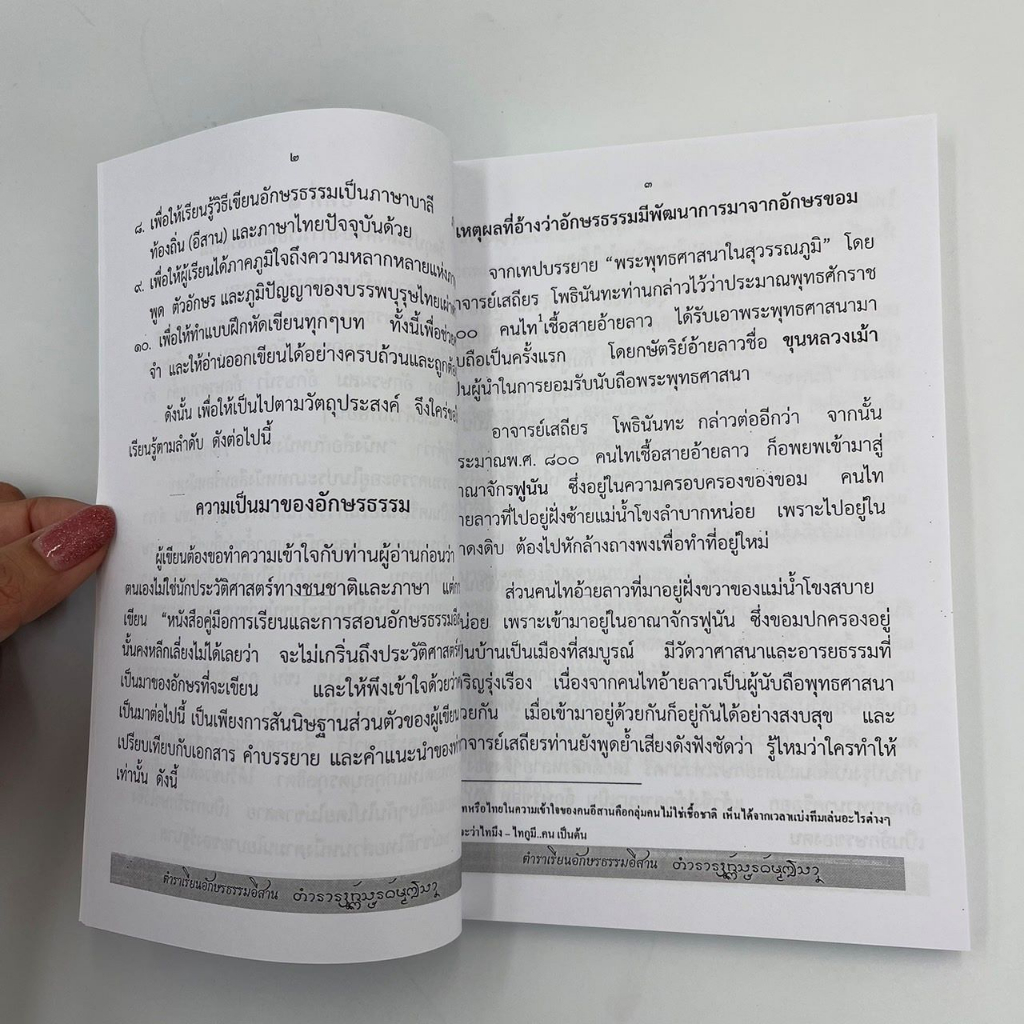 ๒
๘. เพื่อให้เรียนรู้วิธีเขียนอักษรธรรมเป็นภาษาบาลี
ท้องถิ่น (อีสาน) และภาษาไทยปัจจุบันด้วย
๙. เพื่อให้ผู้เรียนได้ภาคภูมิใจถึงความหลากหลายแห่ง
พูด ตัวอักษร และภูมิปัญญาของบรรพบุรุษไทย
๑๐. เพื่อให้ทำแบบฝึกหัดเขียนทุกๆบท ทั้งนี้เพื่อ
จำ และให้อ่านออกเขียนได้อย่างครบถ้วนและ
ดังนั้น เพื่อให้เป็นไปตามวัตถุประสงค์ จึงใคร่
เรียนรู้ตามลำดับ ดังต่อไปนี้
ความเป็นมาของอักษรธรรม
ผู้เขียนต้องขอทำความเข้าใจกับท่านผู้อ่านก่อนว่า
ตนเองไม่ใช่นักประวัติศาสตร์ทางชนชาติและภาษา
เขียน “หนังสือคู่มือการเรียนและการสอนอักษรธรรม
นั้นคงหลีกเลี่ยงไม่ได้เลยว่า จะไม่เกริ่นถึงประวัติศาสตร์
เป็นมาของอักษรที่จะเขียน และให้พึงเข้าใจด้วยว่า
เป็นมาต่อไปนี้ เป็นเพียงการสันนิษฐานส่วนตัวของผู้เขียน
เปรียบเทียบกับเอกสาร คำบรรยาย และคำแนะนำของ
เท่านั้น ดังนี้
ตำราเรียนอักษรธรรมอีสาน
๓
เหตุผลที่อ้างว่าอักษรธรรมมีพัฒนาการมาจากอักษรขอม
จากเทปบรรยาย “พระพุทธศาสนาในสุวรรณภูมิ” โดย
าจารย์เสถียร โพธินันทะท่านกล่าวไว้ว่าประมาณพุทธศักราช
๐๐ คนไท¹เชื้อสายอ้ายลาว ได้รับเอาพระพุทธศาสนามา
ับถือเป็นครั้งแรก โดยกษัตริย์อ้ายลาวชื่อ ขุนหลวงเม้า
ป็นผู้นำในการยอมรับนับถือพระพุทธศาสนา
อาจารย์เสถียร โพธินันทะ กล่าวต่ออีกว่า จากนั้น
ระมาณพ.ศ. ๘๐๐ คนไทเชื้อสายอ้ายลาว ก็อพยพเข้ามาสู่
าณาจักรฟูนัน ซึ่งอยู่ในความครอบครองของขอม คนไท
ายลาวที่ไปอยู่ฝั่งซ้ายแม่น้ำโขงลำบากหน่อย เพราะไปอยู่ใน
าดงดิบ ต้องไปหักล้างถางพงเพื่อทำที่อยู่ใหม่
ส่วนคนไทอ้ายลาวที่มาอยู่ฝั่งขวาของแม่น้ำโขงสบาย
น่อย เพราะเข้ามาอยู่ในอาณาจักรฟูนัน ซึ่งขอมปกครองอยู่
ป็นบ้านเป็นเมืองที่สมบูรณ์ มีวัดวาศาสนาและอารยธรรมที่
จริญรุ่งเรือง เนื่องจากคนไทอ้ายลาวเป็นผู้นับถือพุทธศาสนา
วยกัน เมื่อเข้ามาอยู่ด้วยกันก็อยู่กันได้อย่างสงบสุข และ
าจารย์เสถียรท่านยังพูดย้ำเสียงดังฟังชัดว่า รู้ไหมว่าใครทำให้
ทหรือไทยในความเข้าใจของคนอีสานคือกลุ่มคน ไม่ใช่เชื้อชาติ เห็นได้จากเวลาแบ่งทีมเล่นอะไรต่างๆ
ะว่าไทมึง – ไทกูมี..คน เป็นต้น
ตำราเรียนอักษรธรรมอีสาน